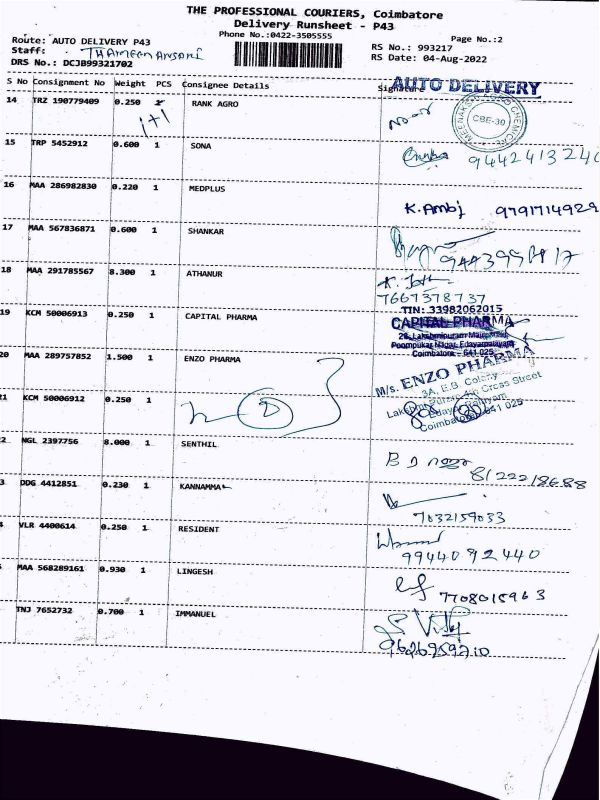 THE PROFESSIONAL COURIERS, Coimbatore
Delivery Runsheet - P43
Phone No.:0422-3505555
Page No.:2
Route: AUTO DELIVERY P43
RS No.: 993217
Staff: THAMEEM ANSARI
RS Date: 04-Aug-2022
DRS No.: DCJB99321702
S No Consignment No Weight PCS Consignee Details Signature
AUTO DELIVERY
14 TRZ 190779409 0.250 RANK AGRO
1+1
CBE-30
15 TRP 5452912 0.600 1 SONA
16 MAA 286982830 0.220 1 MEDPLUS
K. Ambj 9791714929
17 MAA 567836871 0.600 1 SHANKAR
18 MAA 291785567 8.300 1 ATHANUR
7667378737
19 KCM 50006913 0.250 1 CAPITAL PHARMA
TIN: 33982062015
CAPITAL PHARMA
Coimbatore - 641 025
20 MAA 289757852 1.500 1 ENZO PHARMA
M/s. ENZO PHARMA
3A, E.B. Colony
Cross Street
Coimbatore 641 025
KCM 50006912 0.250 1
NGL 2397756 8.000 1 SENTHIL
8122218688
DDG 4412851 0.230 1 KANNAMMA
7032159033
VLR 4400614 0.250 1 RESIDENT
9944092440
MAA 568289161 0.930 1 LINGESH
7708015963
TNJ 7652732 0.700 1 IMMANUEL